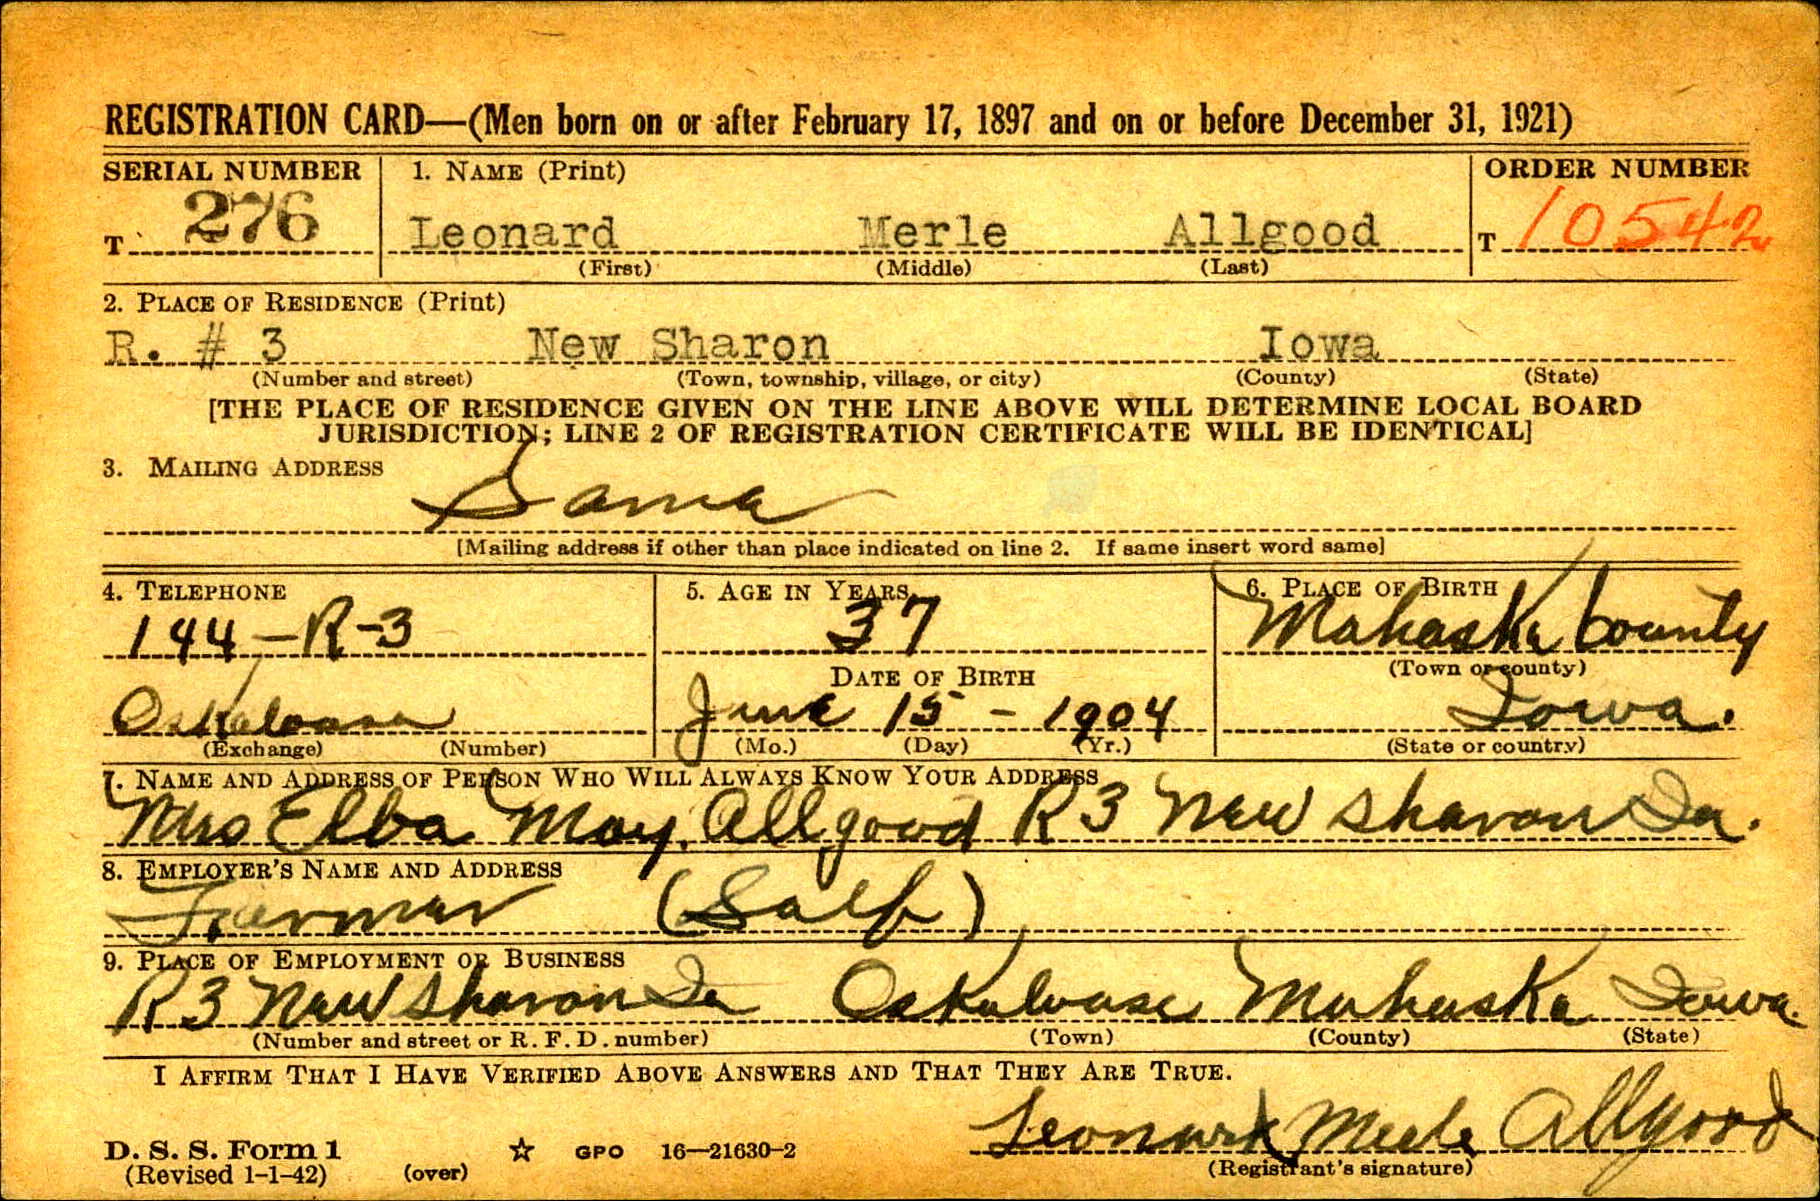 REGISTRATION CARD—(Men born on or after February 17, 1897 and on or before December 31, 1921)
SERIAL NUMBER 1. NAME (Print) ORDER NUMBER
T 276 Leonard Merle Allgood T 10542
(First) (Middle) (Last)
2. PLACE OF RESIDENCE (Print)
R. # 3 New Sharon Iowa
(Number and street) (Town, township, village, or city) (County) (State)
[THE PLACE OF RESIDENCE GIVEN ON THE LINE ABOVE WILL DETERMINE LOCAL BOARD
JURISDICTION; LINE 2 OF REGISTRATION CERTIFICATE WILL BE IDENTICAL]
3. MAILING ADDRESS
Same
[Mailing address if other than place indicated on line 2. If same insert word same]
4. TELEPHONE 5. AGE IN YEARS 6. PLACE OF BIRTH
144-R-3 37 Mahaska County
DATE OF BIRTH (Town or county)
Oskaloosa June 15 - 1904 Iowa.
(Exchange) (Number) (Mo.) (Day) (Yr.) (State or country)
7. NAME AND ADDRESS OF PERSON WHO WILL ALWAYS KNOW YOUR ADDRESS
Mrs Elba May. Allgood R 3 New Sharon Ia.
8. EMPLOYER'S NAME AND ADDRESS
Farmer (Self)
9. PLACE OF EMPLOYMENT OR BUSINESS
R 3 New Sharon Ia Oskaloosa Mahaska Iowa.
(Number and street or R. F. D. number) (Town) (County) (State)
I AFFIRM THAT I HAVE VERIFIED ABOVE ANSWERS AND THAT THEY ARE TRUE.
Leonard Merle Allgood
D. S. S. Form 1 ☆ GPO 16—21630-2
(Revised 1-1-42) (over) (Registrant's signature)